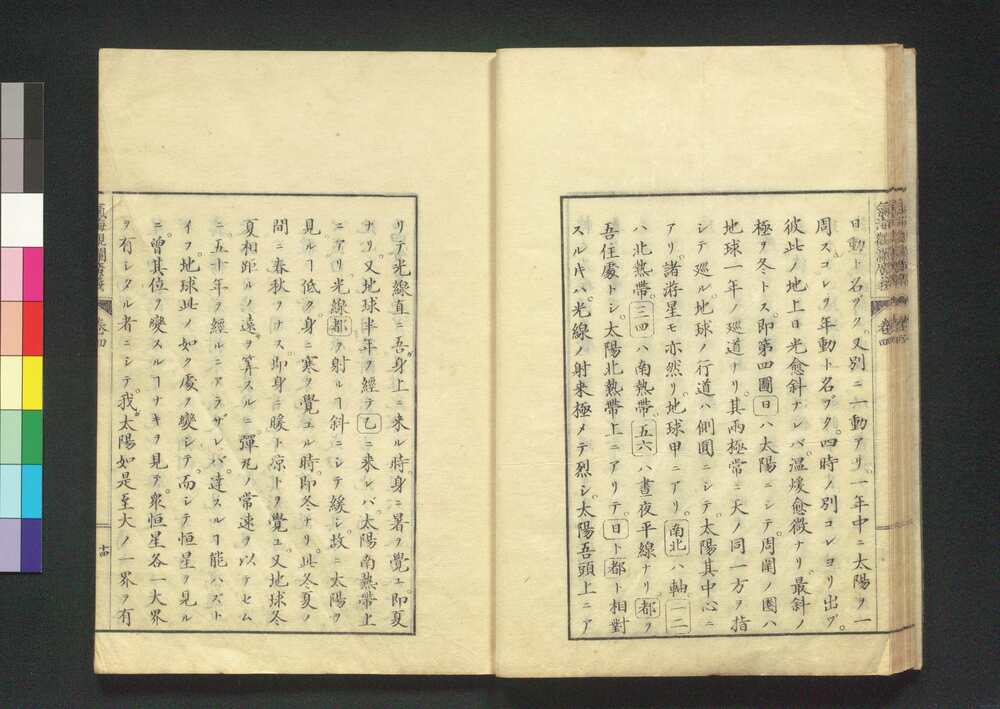 日動ト名ヅク。又別ニ一動アリ。一年中ニ太陽ヲ一
周ス。コレヲ年動ト名ヅク。四時ノ別コレヨリ出ヅ。
彼此ノ地上日光愈斜ナレバ。溫煖愈微ナリ。最斜ノ
極ヲ冬トス。即第四圖日ハ太陽ニシテ。周圍ノ圏ハ
地球一年ノ廻道ナリ。其兩極常ニ天ノ同一方ヲ指
シテ廻ル。地球ノ行道ハ側圓ニシテ。太陽其中心ニ
アリ。諸游星モ亦然リ。地球甲ニアリ。南北ハ軸。一二
ハ北熱帶。三四ハ南熱帶。五六ハ晝夜平線ナリ。都ヲ
吾住處トシ。太陽北熱帶上ニアリテ。日ト都ト相對
スルキハ。光線ノ射来極メテ烈シ。太陽吾頭上ニア
リテ光線直ニ吾身上ニ来ル時。身ニ暑ヲ覺ユ。即夏
ナリ。又地球半年ヲ經テ乙ニ来レバ。太陽南熱帶上
ニアリ。光線都ヲ射ルヿ斜ニシテ緩シ。故ニ太陽ヲ
見ルヿ低ク。身ニ寒ヲ覺ユル時。即冬ナリ。此冬夏ノ
間ニ春秋ヲナス。即身ニ暖ト涼トヲ覺ユ。又地球冬
夏相距ルノ遠ヲ算スルニ。彈丸ノ常速ヲ以テセム
ニ。五十年ヲ經ルニアラザレバ。達スルヿ能ハズト
イフ。地球此ノ如ク處ヲ變シテ。而シテ恒星ヲ見ル
ニ。曾其位ヲ變スルヿナキヲ見テ。衆恒星各一大界
ヲ有シタル者ニシテ。我太陽如是至大ノ一界ヲ有
卷四
卷四
十四